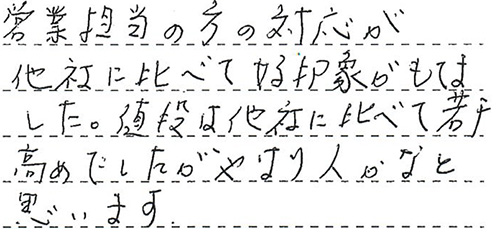 営業担当の方の対応が
他社に比べて好印象がもてま
した。値段は他社に比べて若干
高めでしたがやはり人かなと
思います。